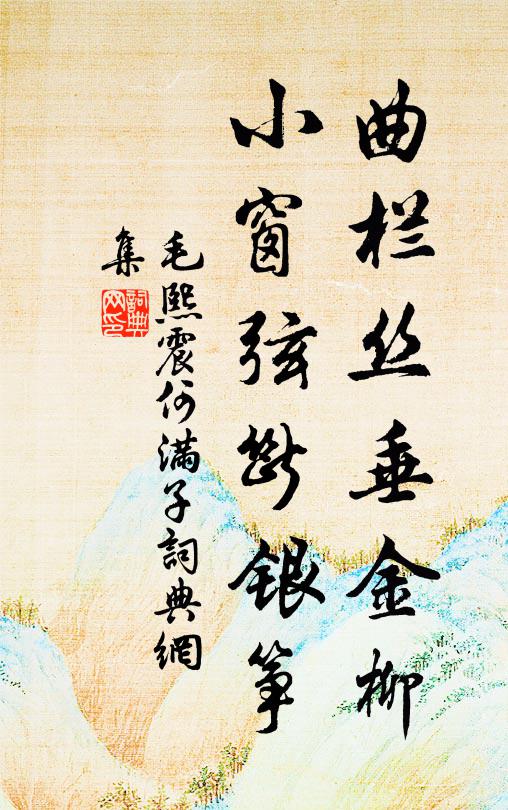 曲栏丝垂金柳
小窗弦断银筝
毛熙震何满子詞典網
集
詞典网印